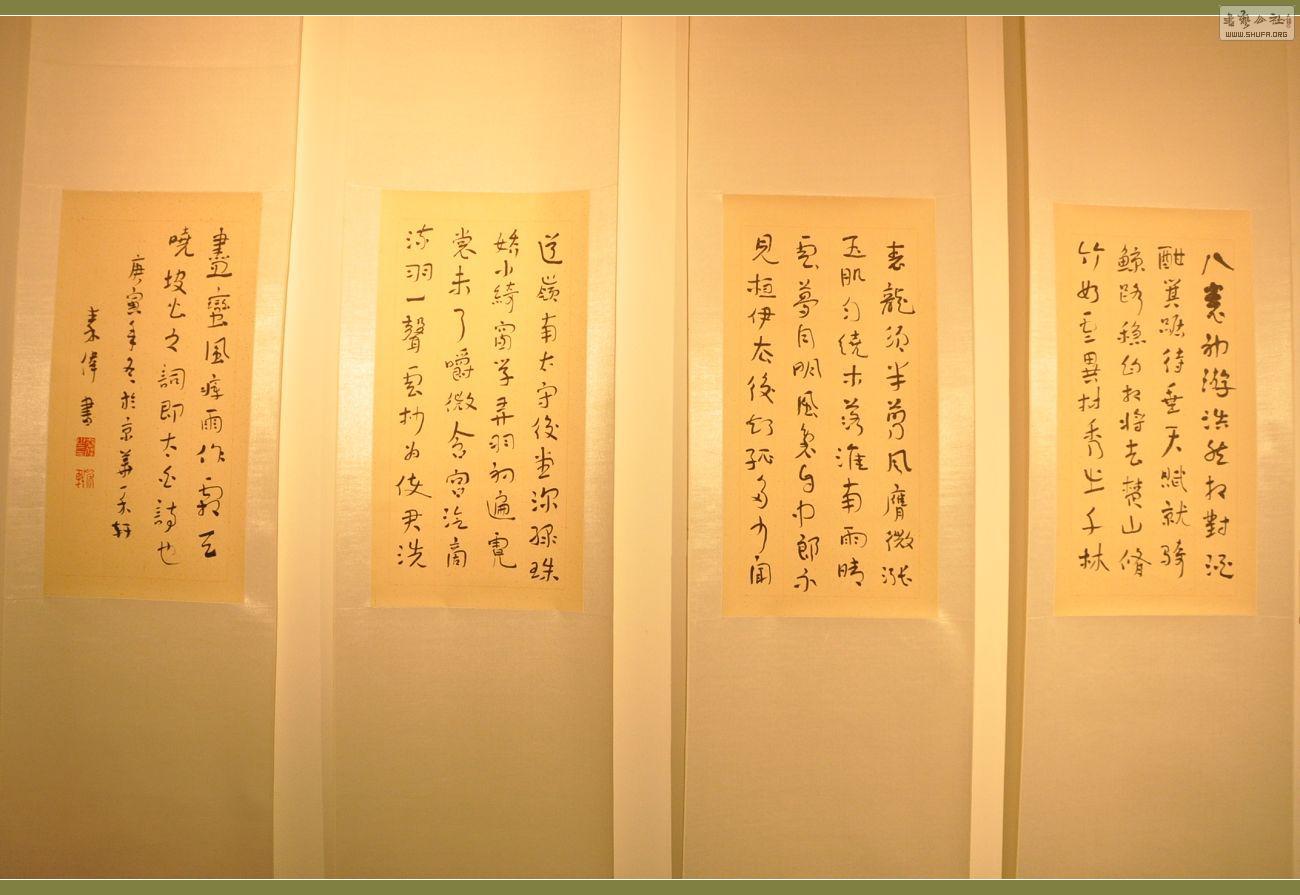 八表神游浩然相對酒
酣箕踞待垂天賦就騎
鯨路穩約相將去楚山脩
竹如雲異材秀出千林
表龍須半剪鳳膺微漲
玉肌勻繞木落淮南雨晴
雲夢月明風裊自中郎不
見桓伊去後知孤多少聞
道嶺南太守後堂深綠珠
嬌小綺窗學弄羽初遍霓
裳未了嚼徵含宮泛商
流羽一聲雲杪為使君洗
盡蠻風瘴雨作霜天
曉坡公之詞即太白詩也
庚寅年冬於京華軒
偉書
書藝公社
WWW.SHUFA.ORG